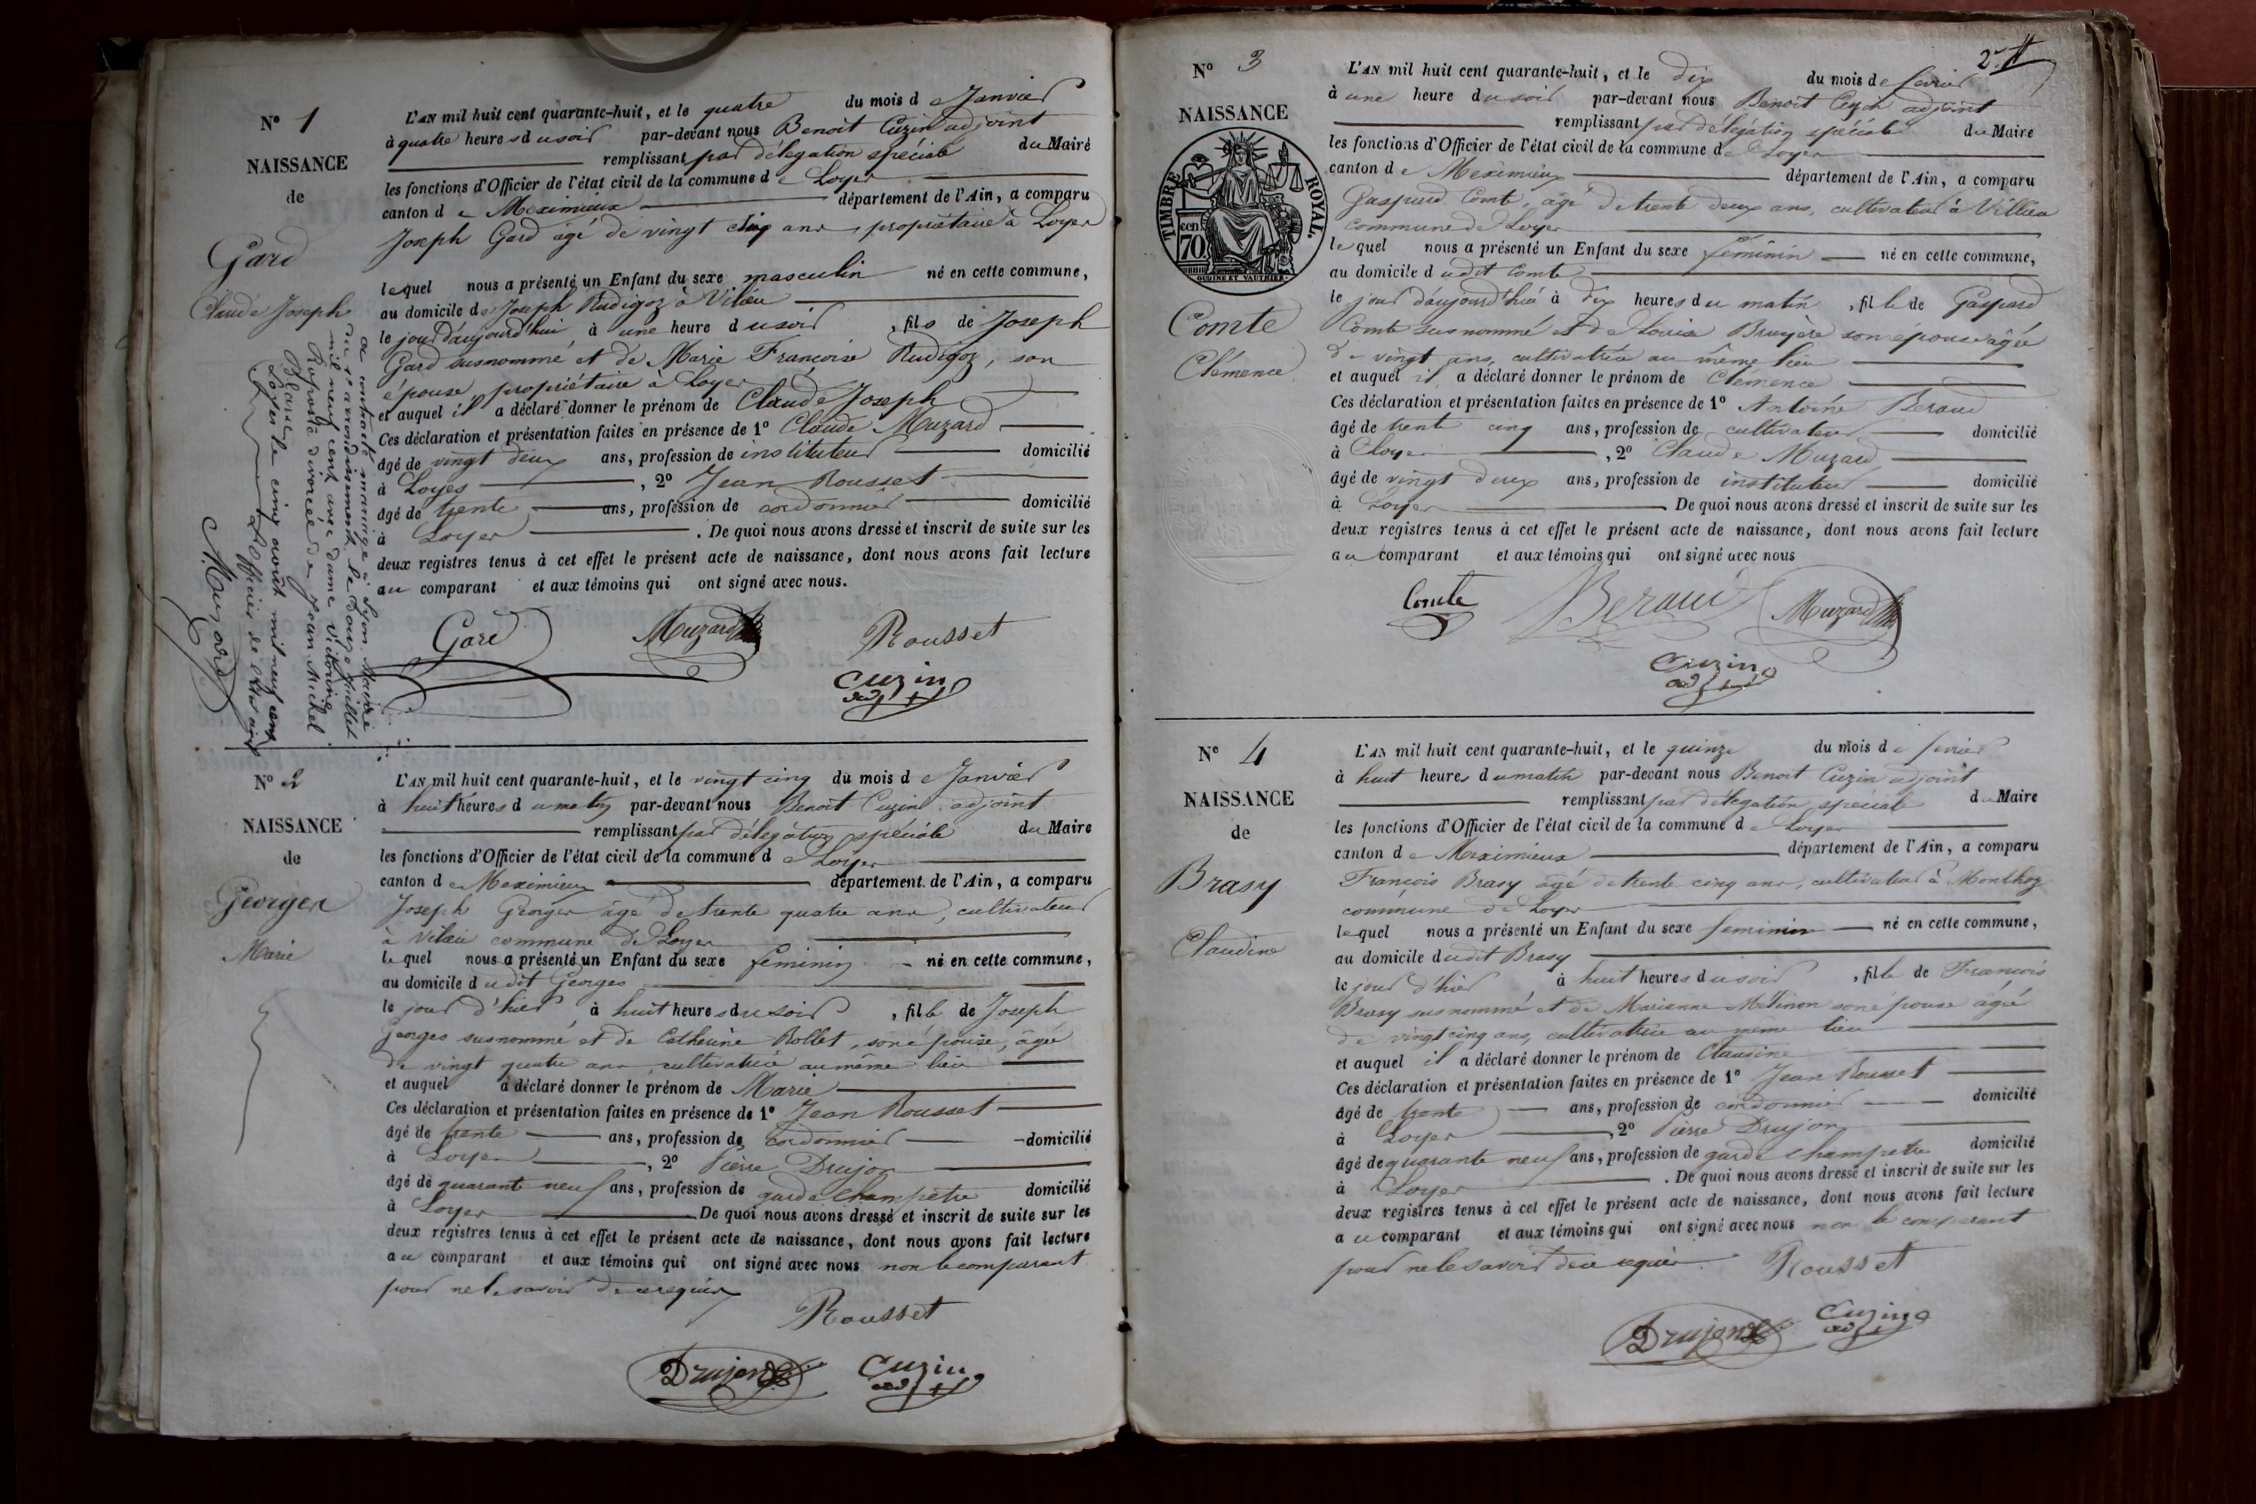 N° 1
NAISSANCE
de
Gard
Claude Joseph
a contracté mariage à Lyon, Mairie
du 1er arrondissement le douze juillet
mil neuf cent avec dame Victorine
Riposte divorcée de Jean Michel
Blanc
Loyes le cinq août mil neuf cent
L'Officier de l'état civil
Muzard
L'AN mil huit cent quarante-huit, et le quatre du mois de Janvier
à quatre heures du soir par-devant nous Benoit Cuzin adjoint
remplissant par délégation spéciale du Maire
les fonctions d'Officier de l'état civil de la commune de Loyes
canton de Meximieux département de l'Ain, a comparu
Joseph Gard âgé de vingt cinq ans, propriétaire à Loyes
lequel nous a présenté un Enfant du sexe masculin né en cette commune,
au domicile de Joseph Rudigoz à Vilieu
le jour d'aujourd'hui à une heure du soir, fils de Joseph
Gard susnommé et de Marie Françoise Rudigoz, son
épouse, propriétaire à Loyes
et auquel il a déclaré donner le prénom de Claude Joseph
Ces déclaration et présentation faites en présence de 1° Claude Muzard
âgé de vingt deux ans, profession de instituteur domicilié
à Loyes, 2° Jean Rousset
âgé de trente ans, profession de cordonnier domicilié
à Loyes. De quoi nous avons dressé et inscrit de suite sur les
deux registres tenus à cet effet le présent acte de naissance, dont nous avons fait lecture
au comparant et aux témoins qui ont signé avec nous.
Gard Muzard Rousset
Cuzin
adj
N° 2
NAISSANCE
de
Georges
Marie
L'AN mil huit cent quarante-huit, et le vingt cinq du mois de Janvier
à huit heures du matin par-devant nous Benoit Cuzin adjoint
remplissant par délégation spéciale du Maire
les fonctions d'Officier de l'état civil de la commune de Loyes
canton de Meximieux département de l'Ain, a comparu
Joseph Georges âgé de trente quatre ans, cultivateur
à Vilieu commune de Loyes
lequel nous a présenté un Enfant du sexe féminin né en cette commune,
au domicile dudit Georges
le jour d'hier à huit heures du soir, fille de Joseph
Georges susnommé et de Catherine Rollet, son épouse, âgée
de vingt quatre ans, cultivatrice au même lieu
et auquel a déclaré donner le prénom de Marie
Ces déclaration et présentation faites en présence de 1° Jean Rousset
âgé de trente ans, profession de cordonnier domicilié
à Loyes, 2° Pierre Drujon
âgé de quarante neuf ans, profession de garde champêtre domicilié
à Loyes De quoi nous avons dressé et inscrit de suite sur les
deux registres tenus à cet effet le présent acte de naissance, dont nous avons fait lecture
au comparant et aux témoins qui ont signé avec nous non le comparant
pour ne le savoir de ce requis
Rousset
Drujon Cuzin
adj
2e
N° 3
NAISSANCE
de
TIMBRE ROYAL.
70 cen
OUDINÉ ET VAUTHIER
Comte
Clémence
L'AN mil huit cent quarante-huit, et le dix du mois de février
à une heure du soir par-devant nous Benoit adjoint
remplissant par délégation spéciale du Maire
les fonctions d'Officier de l'état civil de la commune de Loyes
canton de Meximieux département de l'Ain, a comparu
Gaspard Comte, âgé de trente deux ans, cultivateur à Villieu
commune de Loyes
lequel nous a présenté un Enfant du sexe féminin né en cette commune,
au domicile dudit Comte
le jour d'aujourd'hui à dix heures du matin, fille de Gaspard
Comte susnommé et de Louise Bruyère son épouse âgée
de vingt ans, cultivatrice au même lieu
et auquel il a déclaré donner le prénom de Clémence
Ces déclaration et présentation faites en présence de 1° Antoine Beraud
âgé de trente cinq ans, profession de cultivateur domicilié
à Loyes, 2° Claude Muzard
âgé de vingt deux ans, profession de instituteur domicilié
à Loyes De quoi nous avons dressé et inscrit de suite sur les
deux registres tenus à cet effet le présent acte de naissance, dont nous avons fait lecture
au comparant et aux témoins qui ont signé avec nous
Comte Beraud Muzard
Cuzin
adj
N° 4
NAISSANCE
de
Brasy
Claudine
L'AN mil huit cent quarante-huit, et le quinze du mois de fevrier
à huit heures du matin par-devant nous Benoit Cuzin adjoint
remplissant par délégation spéciale du Maire
les fonctions d'Officier de l'état civil de la commune de Loyes
canton de Meximieux département de l'Ain, a comparu
François Brasy âgé de trente cinq ans, cultivateur à Monthoz
commune de Loyes
lequel nous a présenté un Enfant du sexe feminin né en cette commune,
au domicile dudit Brasy
le jour d'hier à huit heures du soir, fille de François
Brasy susnommé et de Marianne son épouse âgée
de vingt cinq ans, cultivatrice au même lieu
et auquel il a déclaré donner le prénom de Claudine
Ces déclaration et présentation faites en présence de 1° Jean Rousset
âgé de trente ans, profession de cordonnier domicilié
à Loyes, 2° Pierre Drujon
âgé de quarante neuf ans, profession de garde champetre domicilié
à Loyes. De quoi nous avons dressé et inscrit de suite sur les
deux registres tenus à cet effet le présent acte de naissance, dont nous avons fait lecture
au comparant et aux témoins qui ont signé avec nous non le comparant
pour ne le savoir de ce requis. Rousset
Drujon Cuzin
adj